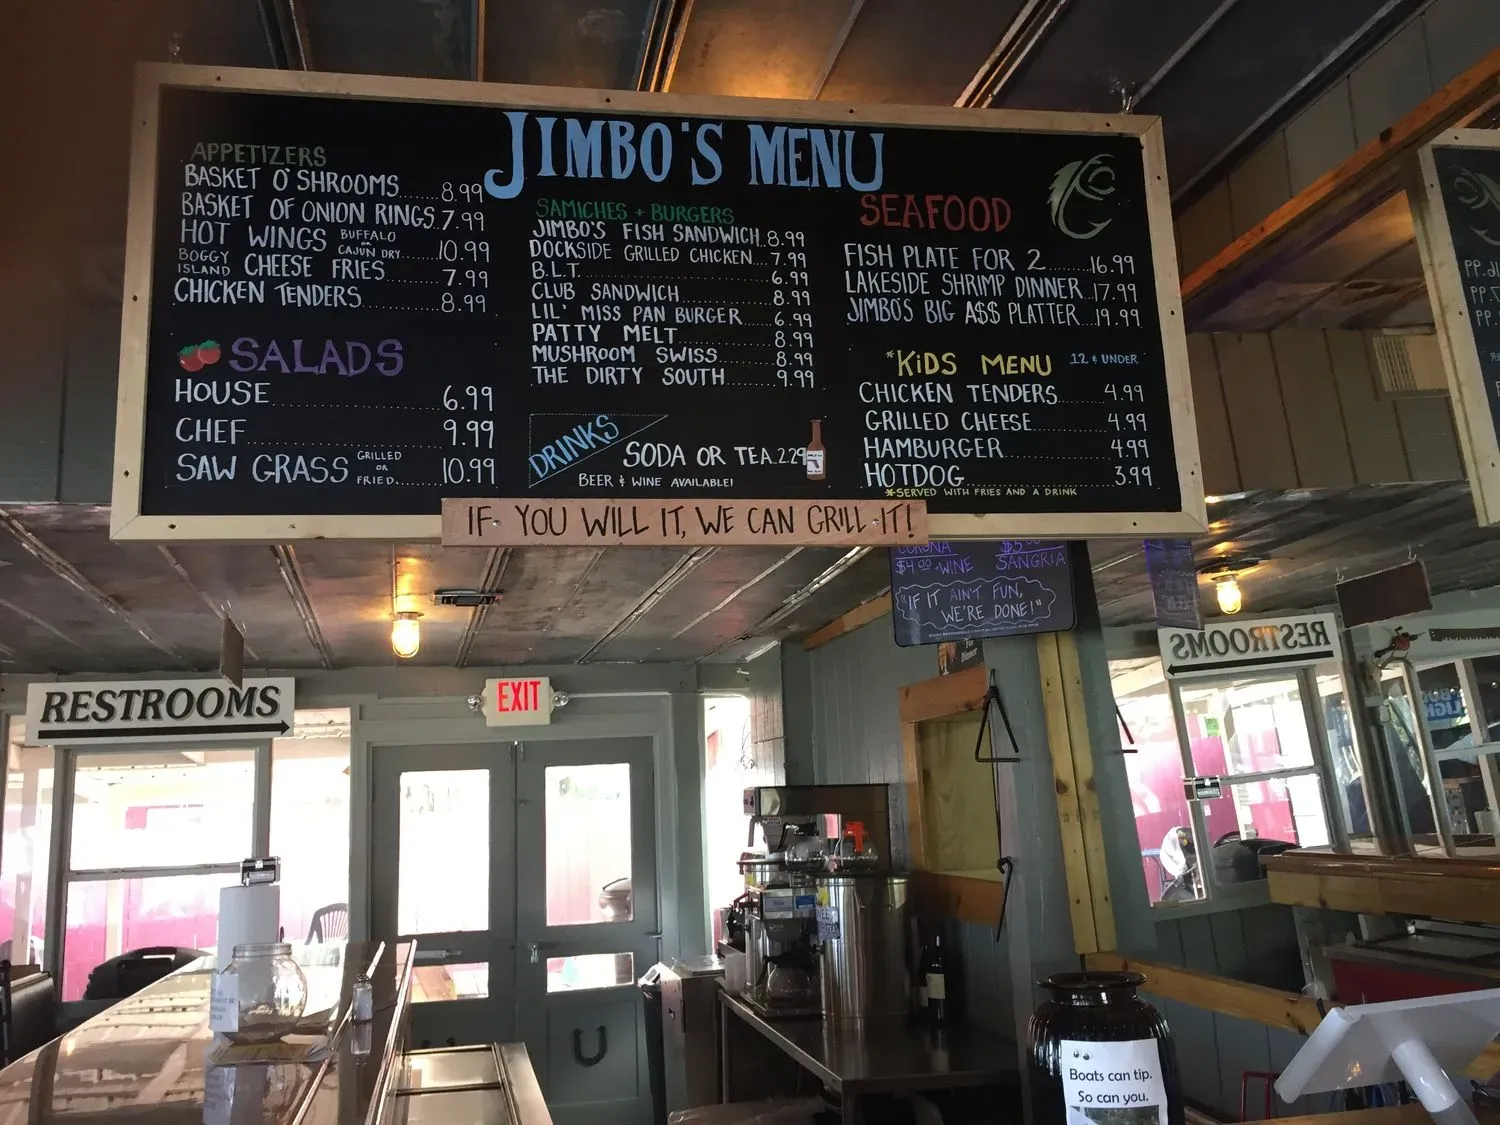 JIMBO'S MENU
APPETIZERS
BASKET O'SHROOMS......8.99
BASKET OF ONION RINGS.7.99
HOT WINGS BUFFALO OR CAJUN DRY....10.99
BOGGY ISLAND CHEESE FRIES......7.99
CHICKEN TENDERS........8.99
SALADS
HOUSE..................6.99
CHEF...................9.99
SAW GRASS GRILLED OR FRIED......10.99
SAMICHES + BURGERS
JIMBO'S FISH SANDWICH..8.99
DOCKSIDE GRILLED CHICKEN...7.99
B.L.T..................6.99
CLUB SANDWICH..........8.99
LIL' MISS PAN BURGER....6.99
PATTY MELT.............8.99
MUSHROOM SWISS.........8.99
THE DIRTY SOUTH........9.99
DRINKS
SODA OR TEA..2.29
BEER & WINE AVAILABLE!
SEAFOOD
FISH PLATE FOR 2.......16.99
LAKESIDE SHRIMP DINNER..17.99
JIMBO'S BIG A$$ PLATTER...19.99
*KIDS MENU 12 & UNDER
CHICKEN TENDERS......4.99
GRILLED CHEESE.......4.99
HAMBURGER............4.99
HOTDOG...............3.99
*SERVED WITH FRIES AND A DRINK
IF YOU WILL IT, WE CAN GRILL IT!
CORONA $5.00
$4.00 WINE SANGRIA
"IF IT AIN'T FUN,
WE'RE DONE!"
For
Dinner
RESTROOMS
EXIT
RESTROOMS
LIGHT
Boats can tip.
So can you.